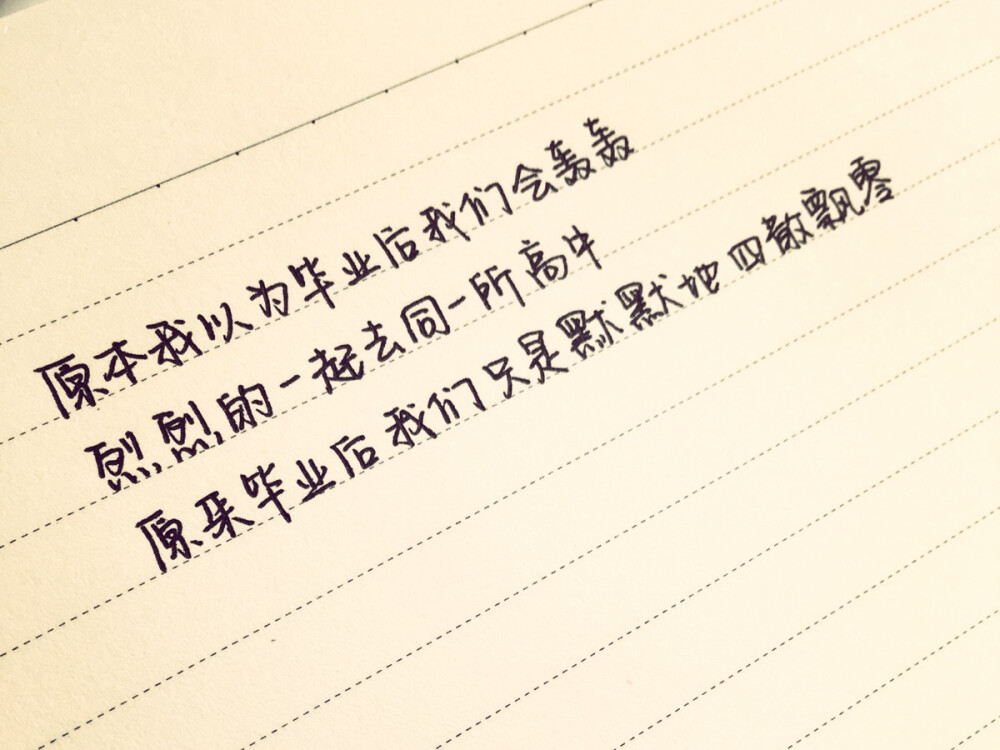 原本我以为毕业后我们会轰轰
烈烈的一起去同一所高中
原来毕业后我们只是默默地四散飘零